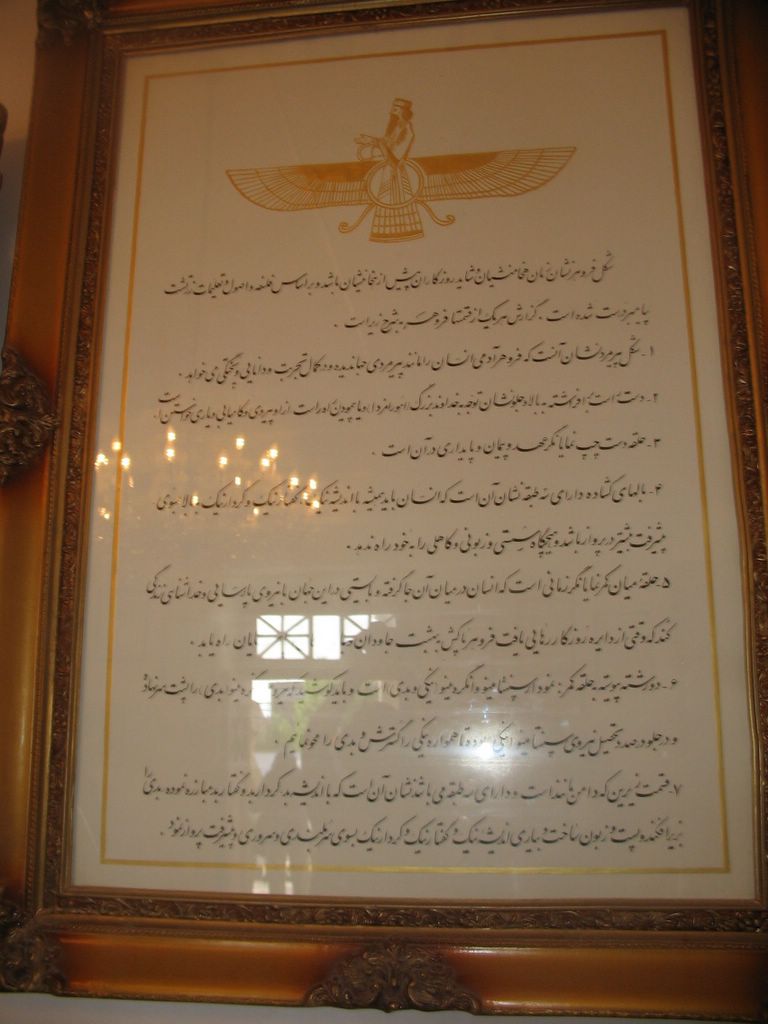 شکل فروهر نشان زمان هخامنشیان و شاید روزگاران پیش از هخامنشیان باشد و بر اساس فلسفه و اصول و تعلیمات زرتشت
پیامبر درست شده است . گزارش هر یک از قسمتها فروهر به شرح زیر است .
۱- شکل پیرمرد نشان آنست که فروهر آدمی انسان را مانند پیرمردی جهاندیده و در کمال تجربت و دانایی و پختگی می‌خواهد .
۲- دست راست برافراشته به بالا و جلو نشان توجه به خداوند بزرگ (اهورامزدا) و پیمودن راه راست از او پیروی و کامیابی و یاری خواستن است .
۳- حلقه دست چپ نمایانگر عهد و پیمان و پایداری در آن است .
۴- بالهای گشاده دارای سه طبقه نشان آن است که انسان باید همیشه با اندیشه نیک، گفتار نیک و کردار نیک به بالا و بسوی
پیشرفت بیشتر در پرواز باشد و هیچگاه سستی و زبونی و کاهلی را به خود راه ندهد .
۵- حلقه میان کمر نمایانگر زمانی است که انسان در میان آن جا گرفته و بایستی در این جهان با نیروی پارسایی و خداشناسی زندگی
کند که وقتی از دایره روزگار رهایی یافت فروهر پاکش ببهشت جاودان یابان راه یابد .
۶- دو رشته پیوسته به حلقه کمر : نمودار سپنتا مینو و انگره مینو (نیکی و بدی) است و باید کوشید که مینو (بدی) را پشت سر نهاده
و در جلو درصدد تحصیل نیروی سپنتا مینو (نیکی) بوده تا همواره نیکی را گسترش و بدی را محو نمائیم .
۷- قسمت زیرین که دامن مانند است و دارای سه طبقه می باشد نشان آن است که با اندیشه بد کردار بد و گفتار بد مبارزه نموده ، بدی را
بزیر افکنده و پست و زبون ساخت و بیاری اندیشه نیک و گفتار نیک و کردار نیک بسوی سربلندی و سروری و پیشرفت پرواز نمود .